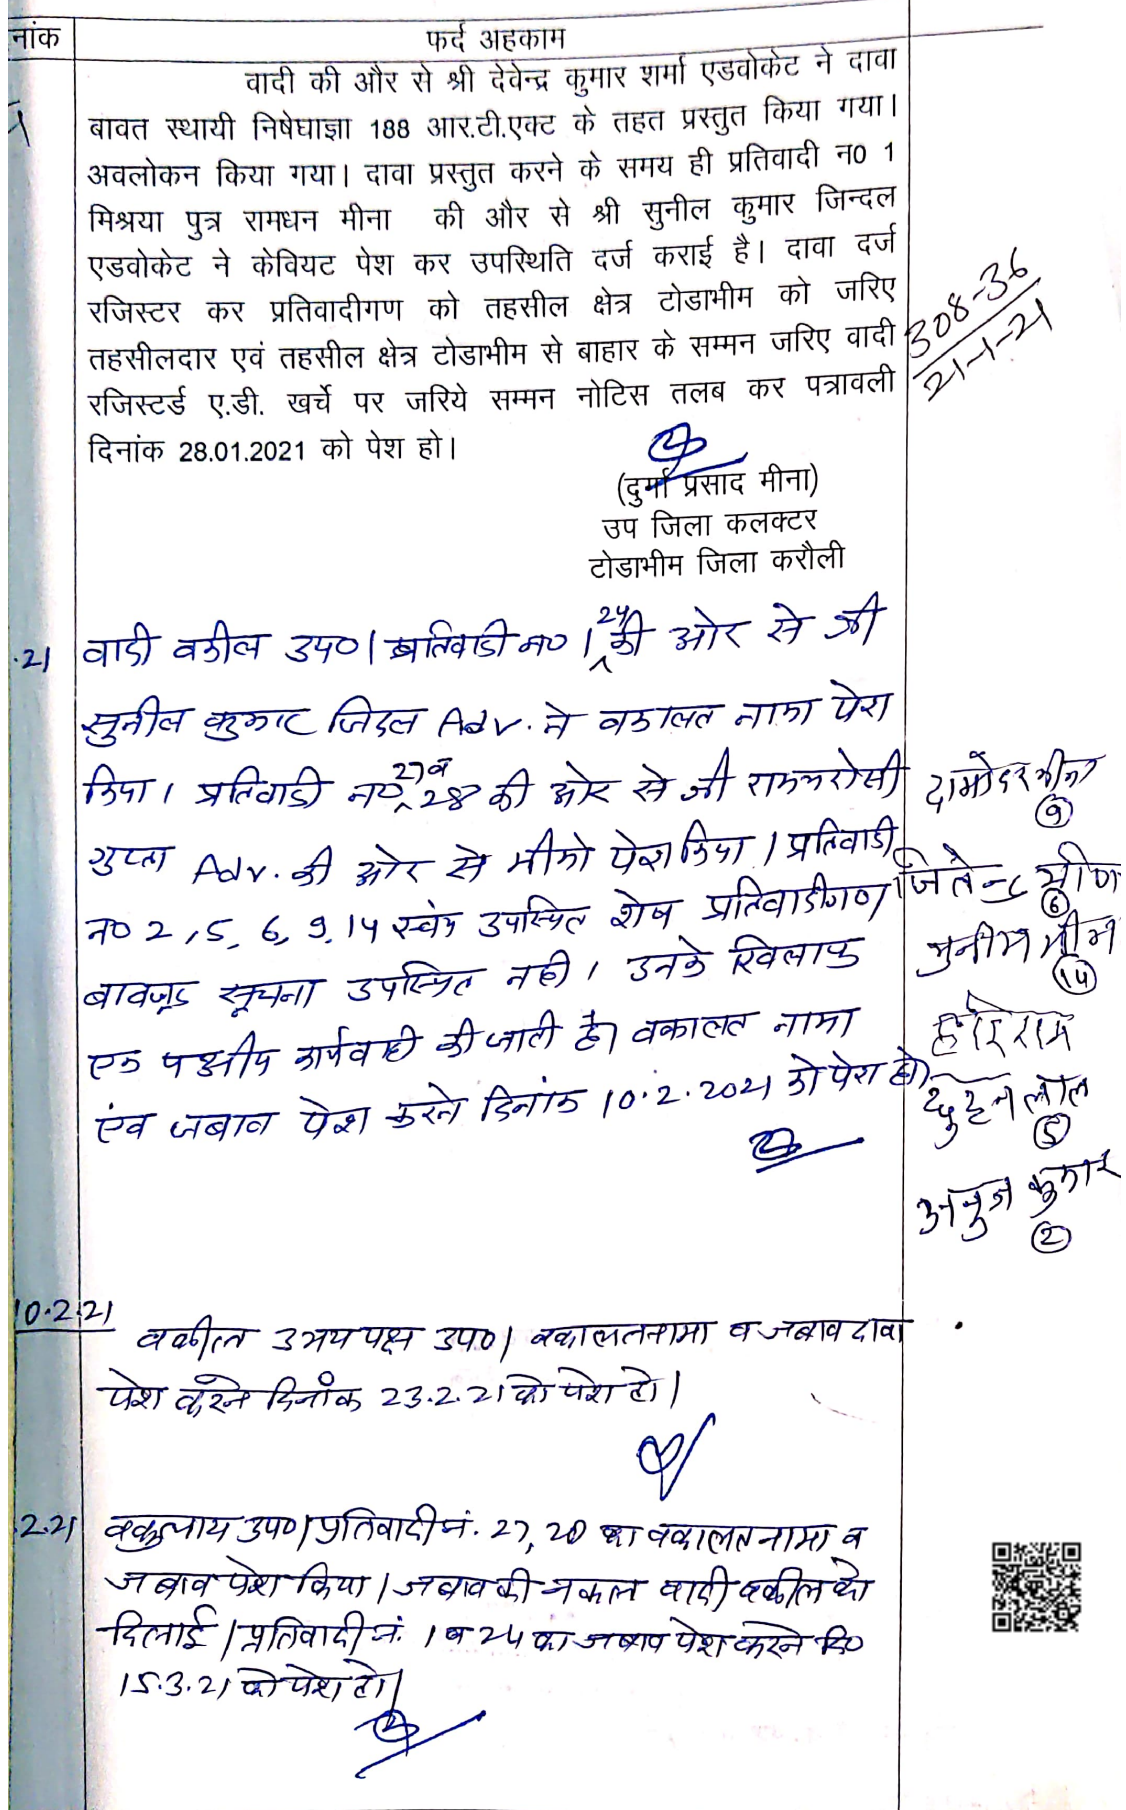 नांक
फर्द अहकाम
वादी की और से श्री देवेन्द्र कुमार शर्मा एडवोकेट ने दावा
बावत स्थायी निषेधाज्ञा 188 आर.टी.एक्ट के तहत प्रस्तुत किया गया।
अवलोकन किया गया। दावा प्रस्तुत करने के समय ही प्रतिवादी न0 1
मिश्रया पुत्र रामधन मीना की और से श्री सुनील कुमार जिन्दल
एडवोकेट ने केवियट पेश कर उपस्थिति दर्ज कराई है। दावा दर्ज
रजिस्टर कर प्रतिवादीगण को तहसील क्षेत्र टोडाभीम को जरिए
तहसीलदार एवं तहसील क्षेत्र टोडाभीम से बाहार के सम्मन जरिए वादी
रजिस्टर्ड ए.डी. खर्चे पर जरिये सम्मन नोटिस तलब कर पत्रावली
दिनांक 28.01.2021 को पेश हो।
308-36
21-1-21
(दुर्गा प्रसाद मीना)
उप जिला कलक्टर
टोडाभीम जिला करौली
.21 वादी वकील उप0। प्रतिवादी न0 1, 24 की ओर से श्री
सुनील कुमार जिंदल Adv. ने वकालत नामा पेश
किया। प्रतिवादी न0 27 व 28 की ओर से श्री रामभरोसी
गुप्ता Adv. की ओर से मीमो पेश किया। प्रतिवादी
न0 2, 5, 6, 9, 14 स्वंय उपस्थित शेष प्रतिवादीगण
बावजूद सूचना उपस्थित नही। उनके खिलाफ
एक पक्षीय कार्यवाही की जाती है। वकालत नामा
एंव जबाव पेश करने दिनांक 10.2.2021 को पेश हो।
दामोदर मीना
9
जितेन्द्र मीणा
6
मुनीम मीना
14
हरिराम
लाल
5
अनुज कुमार
2
10.2.21
वकील उभय पक्ष उप0। वकालतनामा व जबाव दावा
पेश करने दिनांक 23.2.21 को पेश हो।
.2.21 वकुलाय उप0। प्रतिवादी नं. 27, 28 का वकालतनामा व
जबाव पेश किया। जबाव की नकल वादी वकील को
दिलाई। प्रतिवादी नं. 1 व 24 का जबाव पेश करने दि0
15.3.21 को पेश हो।